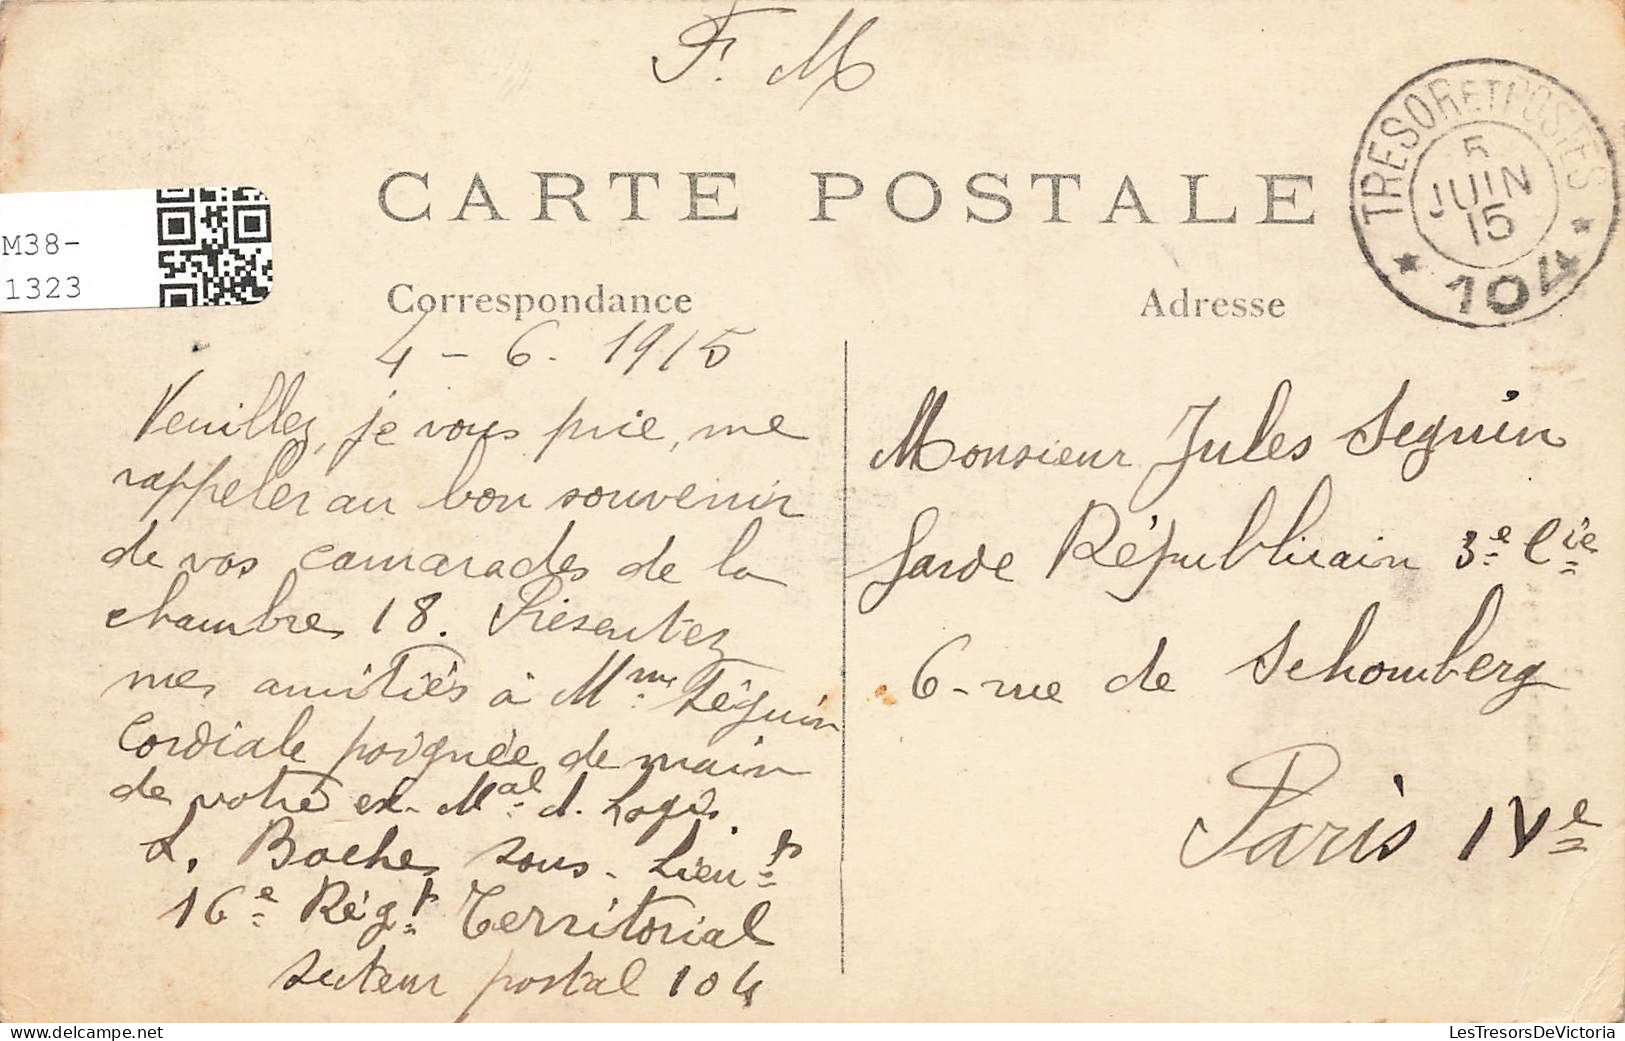 F. M
CARTE POSTALE
TRESOR ET POSTES
5
JUIN
15
* 104 *
M38-
1323
Correspondance
4 - 6. 1915
Veuillez, je vous prie, me
rappeler au bon souvenir
de vos camarades de la
chambre 18. Présentez
mes amitiés à Mme Séguin
Cordiale poignée de main
de votre ex- Mal d. Logis.
L. Boches sous-Lieut
16e Régt Territorial
secteur postal 104
Adresse
Monsieur Jules Seguin
Garde Républicain 3e Cie
6 - rue de Schomberg
Paris IVe
LesTresorsDeVictoria